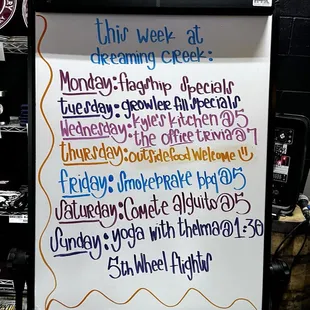 this week at
dreaming creek:
Monday: flagship specials
tuesday: growler fill specials
Wednesday: kyle's kitchen @ 5
the office trivia @ 7
thursday: outside food welcome
friday: Smokebrake bbq @ 5
Saturday: Comete alguito @ 5
Sunday: yoga with thelma @ 1:30
5th Wheel flights